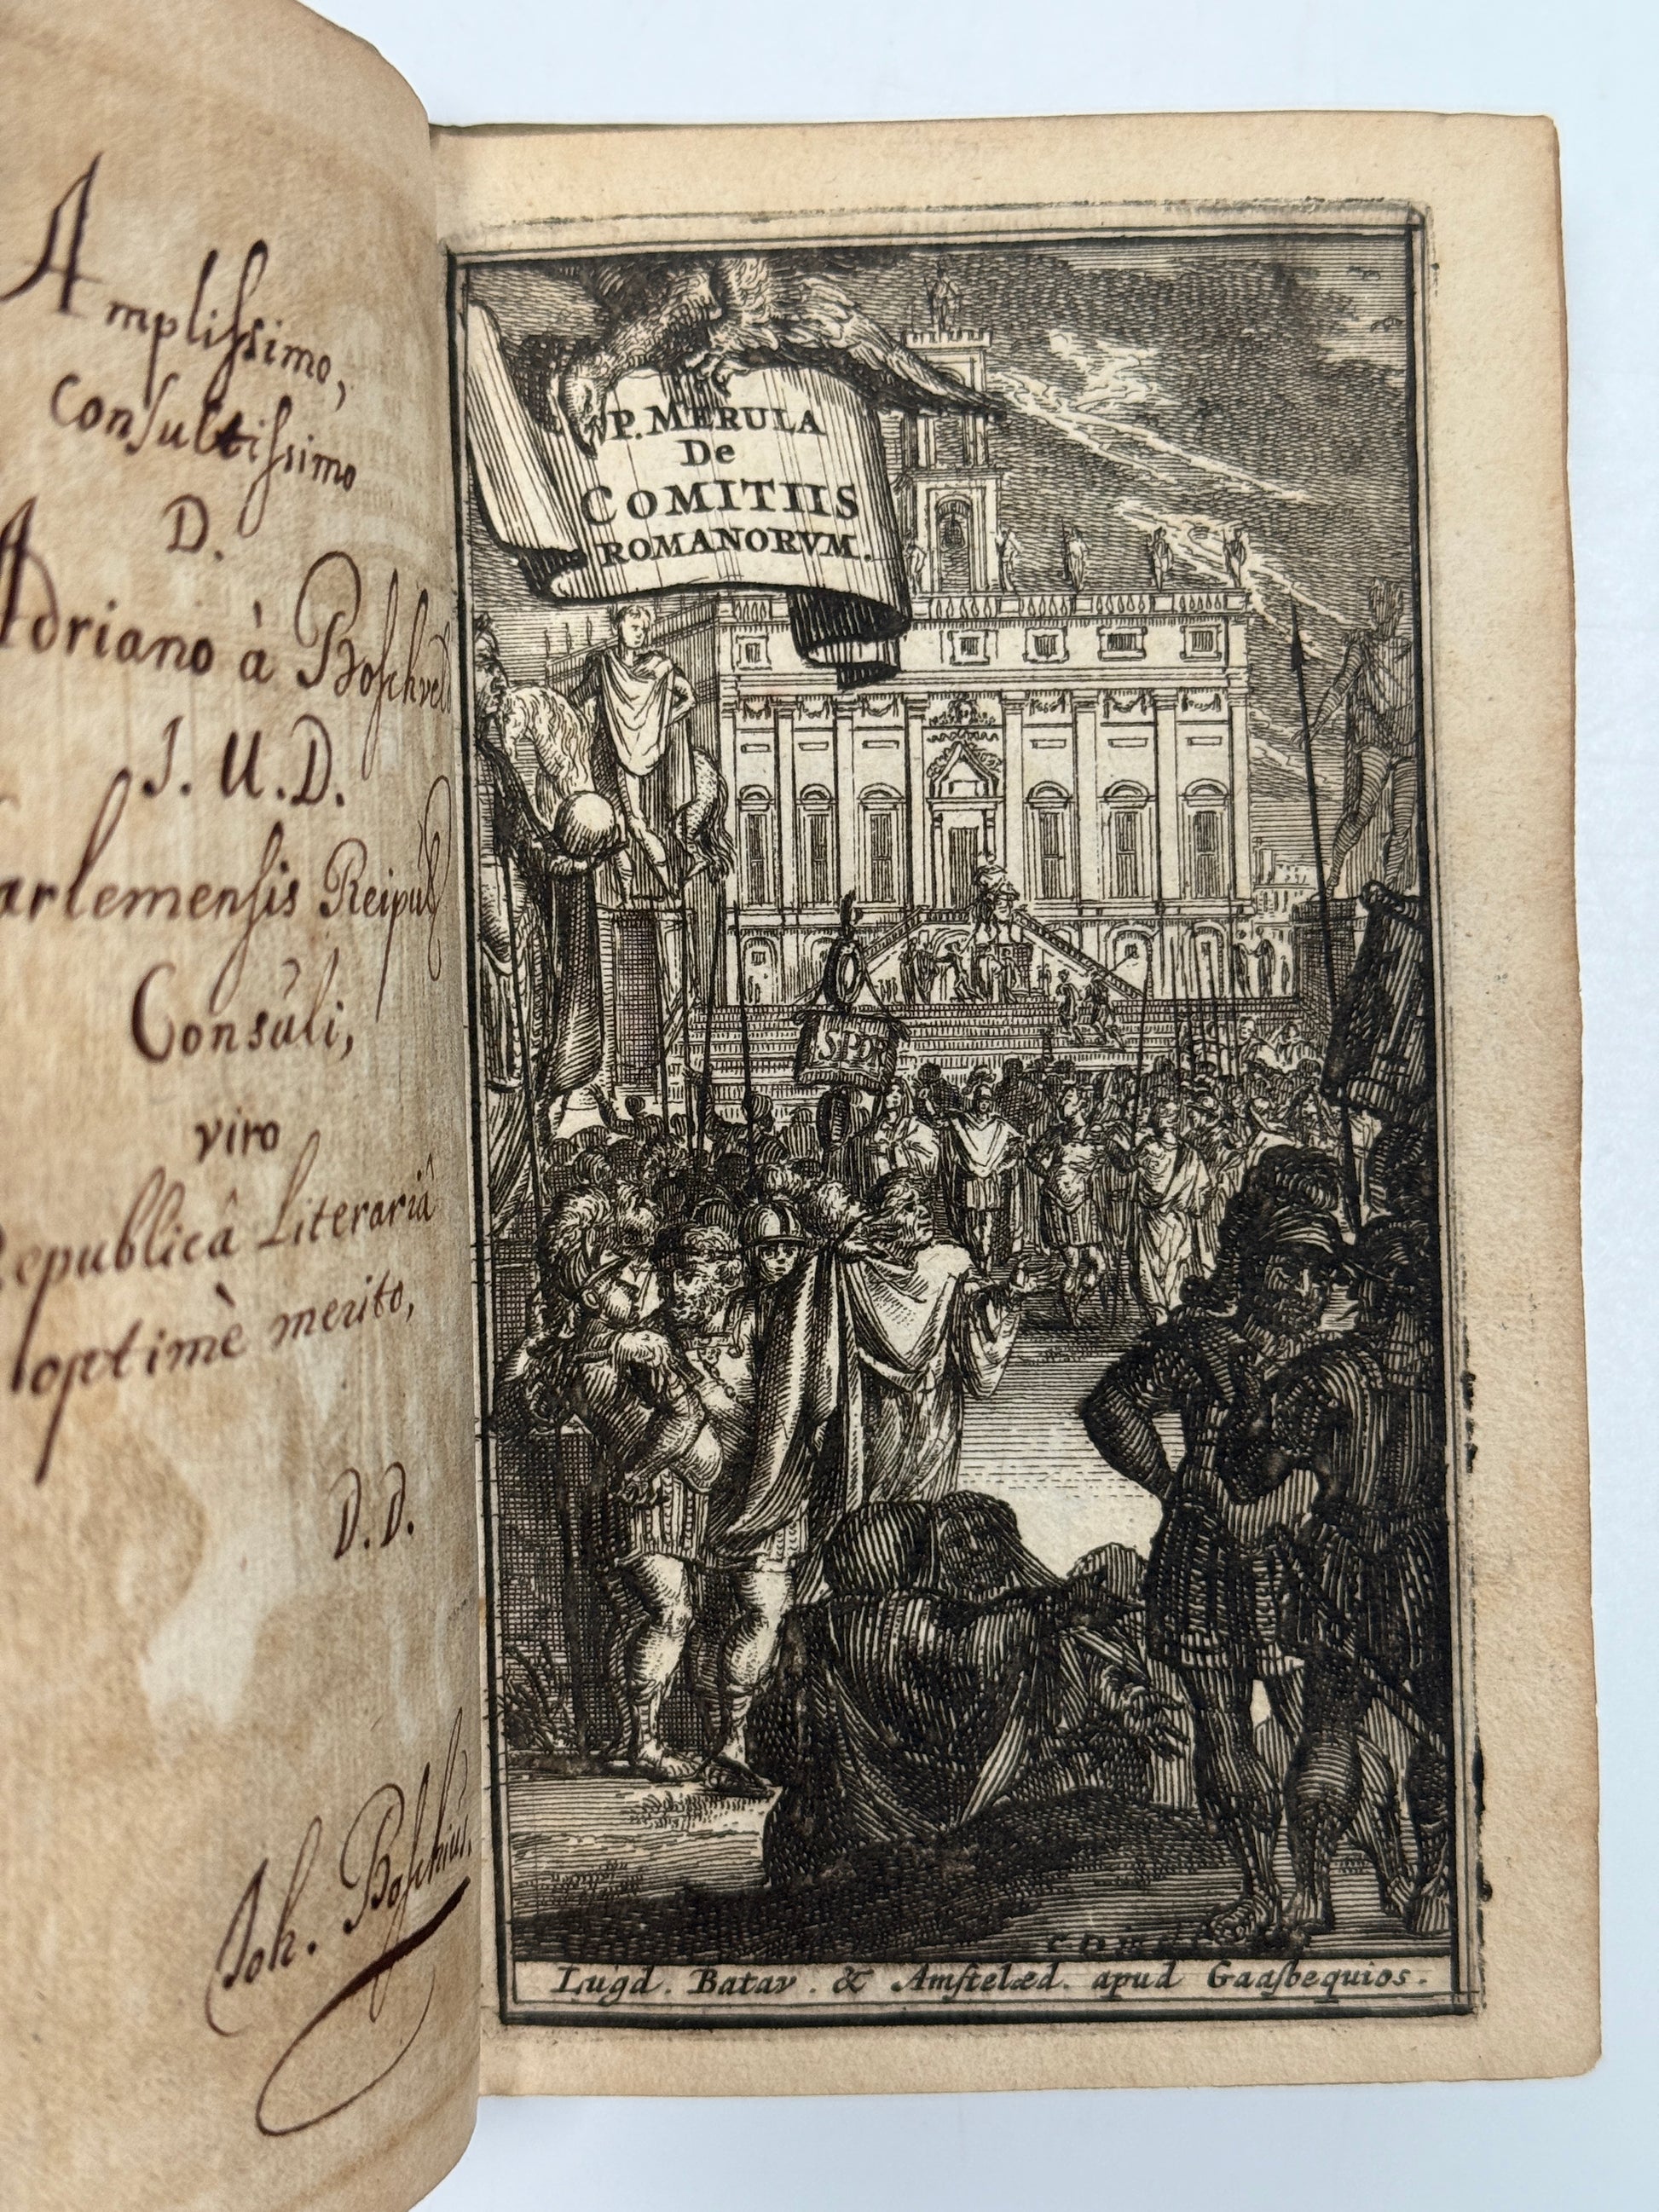 Ampliſsimo,
Conſultiſsimo
D.
Adriano à Boſchveld
J. U. D.
arlemenſis Reipub
Consuli,
viro
Republicâ Literariâ
optimè merito,
D. D.
Joh. Boſchius.
P. MERULA
De
COMITIIS
ROMANORVM.
SPQR
Lugd. Batav. & Amſtelæd. apud Gaaſbequios.